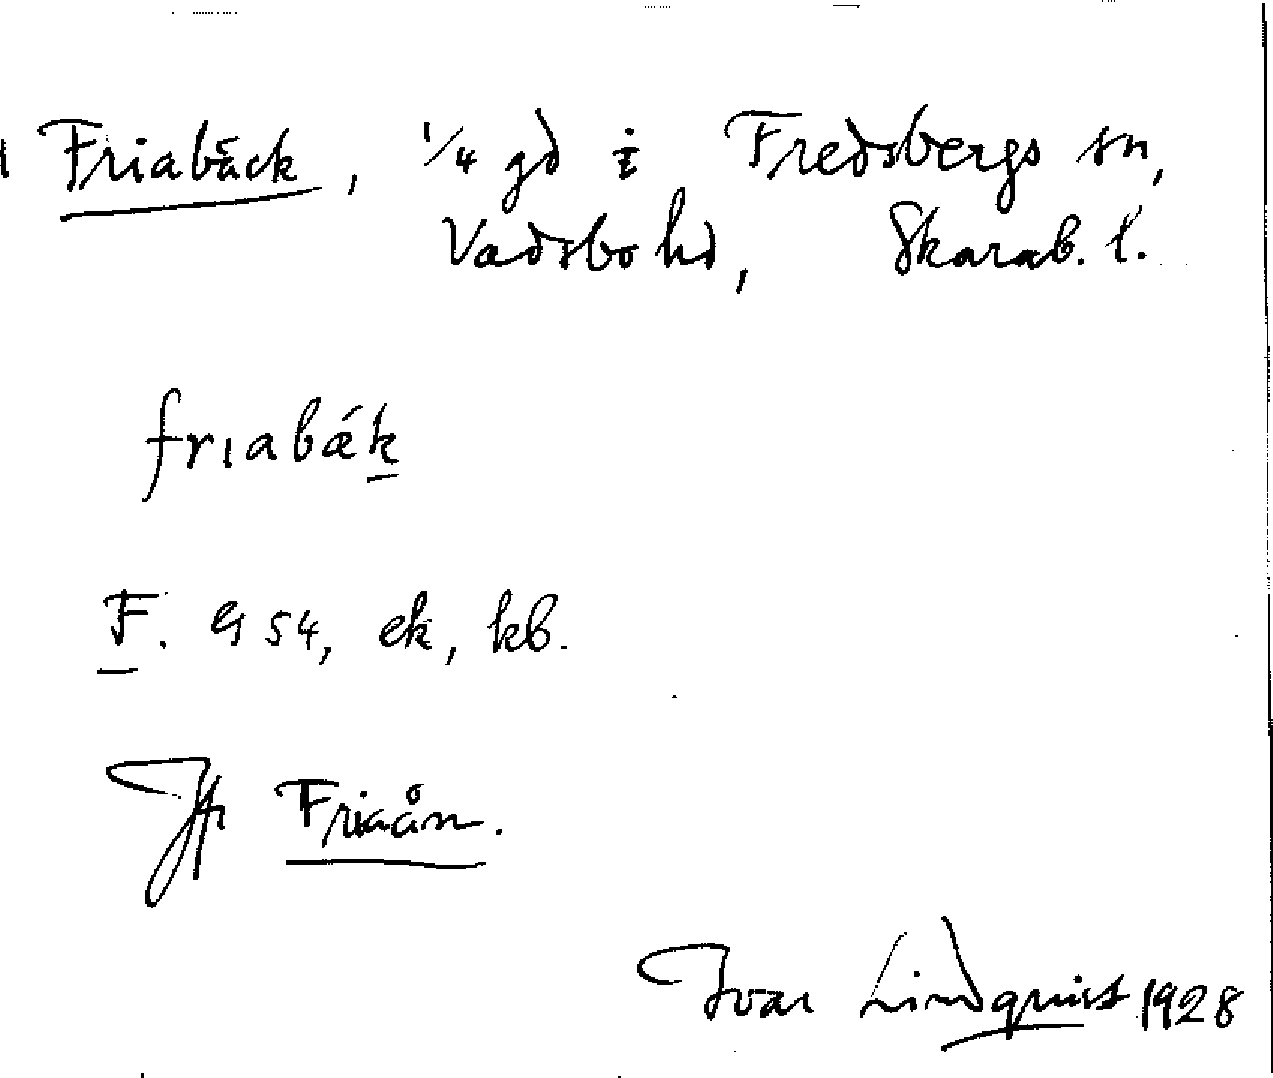 Friabäck, 1/4 gd i Fredsbergs sn,
Vadsbo hd, Skarab. l.
friabǽk
F. G 54, ek, kb.
Jfr Friaån.
Ivar Lindquist 1928